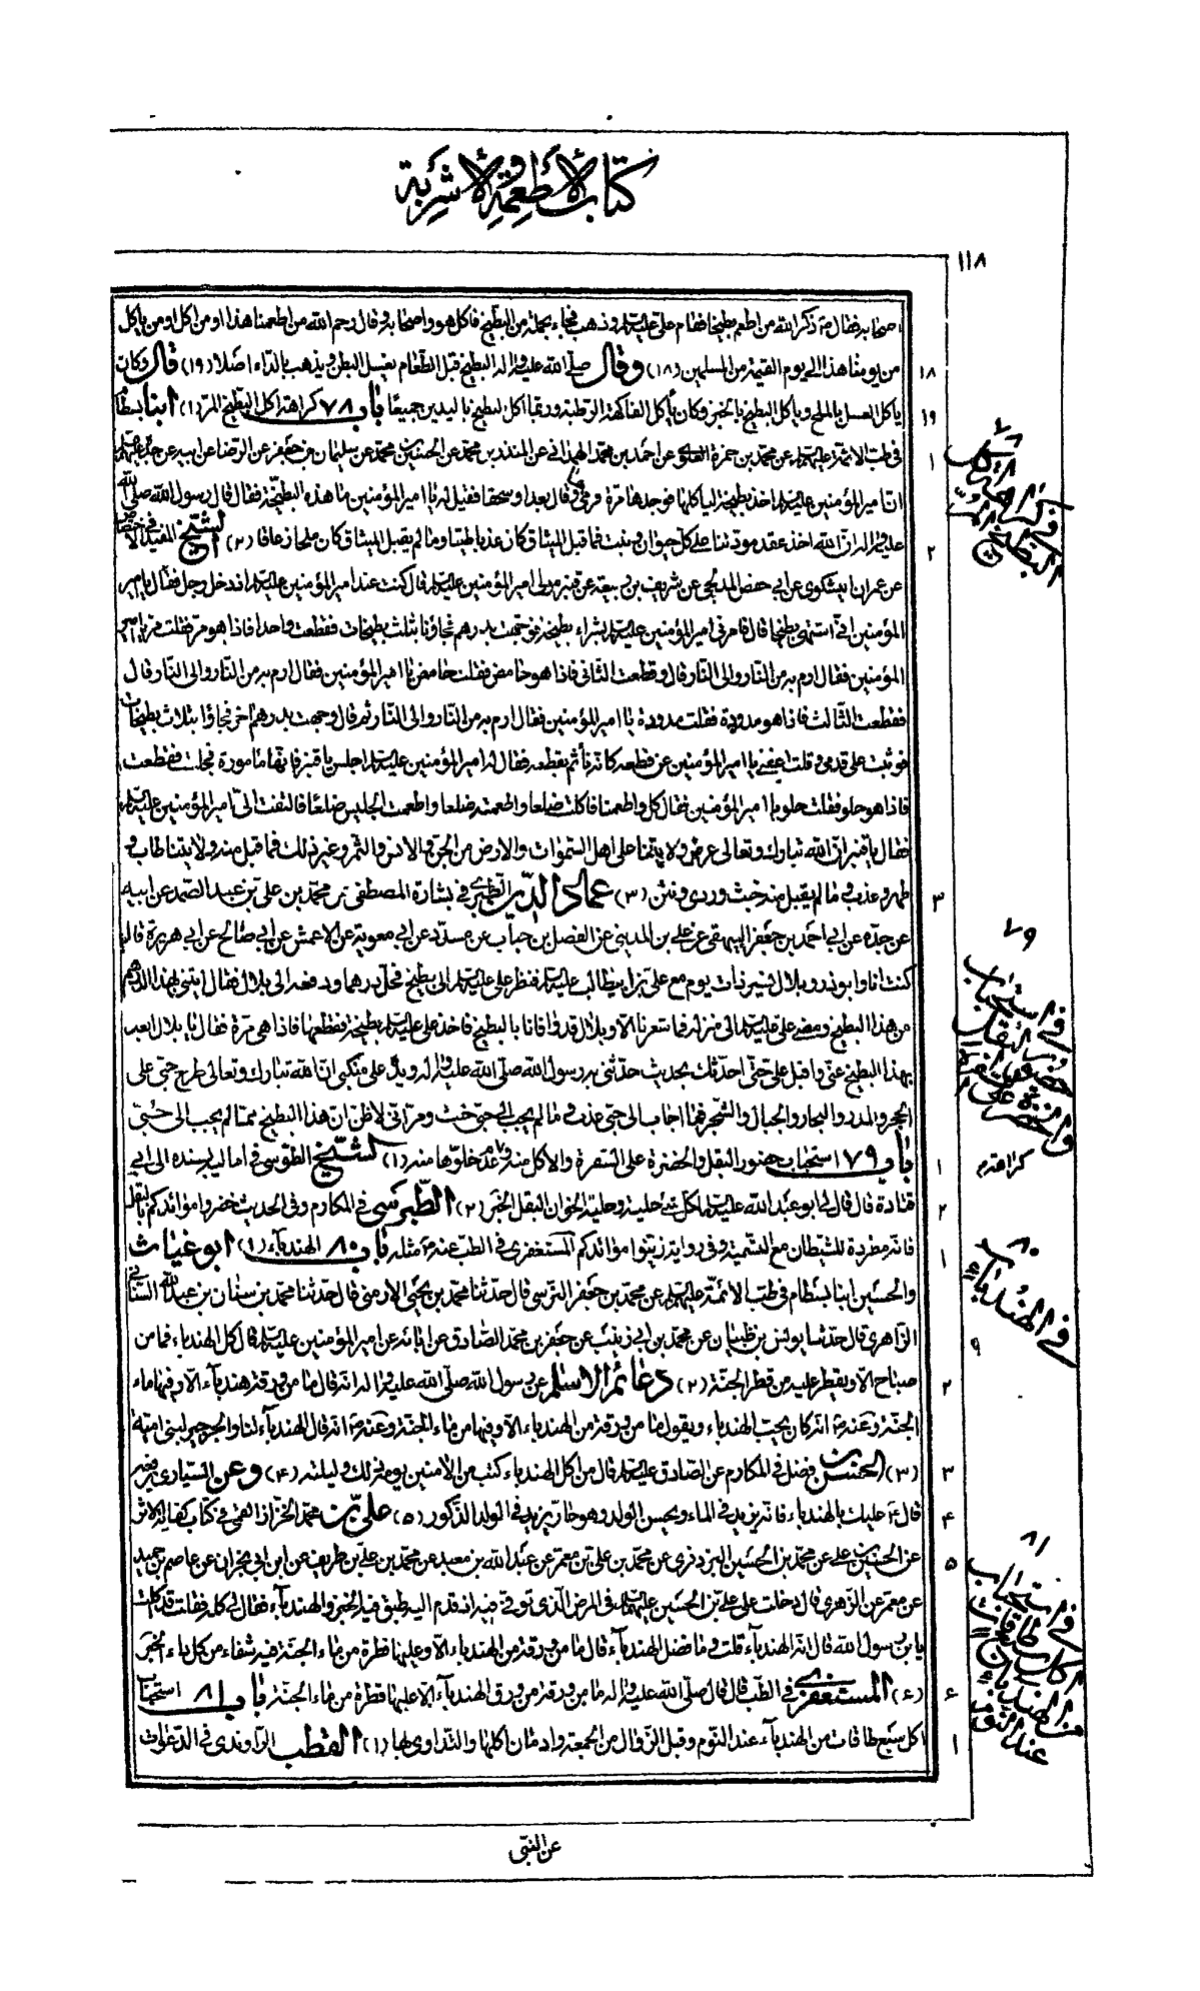 كتاب الأطعمة والأشربة
١١٨
اصحابه فقال ص ذكر الله من اطعم بطيخا فقام علي عليه السلام وذهب فجاء بجملة من البطيخ فاكل هو واصحابه وقال رحم الله من اطعمنا هذا ومن اكل ومن ياكل
من يومنا هذا الى يوم القيمة من المسلمين (١٨) وقال صلى الله عليه واله البطيخ قبل الطعام يغسل البطن ويذهب بالداء اصلا (١٩) قال وكان
ياكل العسل بالملح وياكل البطيخ بالخبز وكان ياكل الفاكهة الرطبة وربما اكل البطيخ باليدين جميعا باب ٧٨ كراهة اكل البطيخ المر (١) ابنا بسطام
في طب الائمة عليهم السلام عن محمد بن حمزة العلوي عن احمد بن محمد الهمداني عن المنذر بن محمد عن الحسين بن محمد عن سليمان بن جعفر عن الرضا عن ابيه عن جده عليهم السلام
ان امير المؤمنين عليه السلام اخذ بطيخة لياكلها فوجدها مرة فرمى بها وقال بعدا وسحقا فقيل له يا امير المؤمنين ما هذه البطيخة فقال قال رسول الله صلى الله
عليه واله ان الله اخذ عقد مودتنا على كل حيوان ونبت فما قبل الميثاق كان عذبا طيبا وما لم يقبل الميثاق كان ملحا زعاقا (٢) الشيخ المفيد في الاختصاص
عن عمران ابي شكوى عن ابي حفص المدلجي عن شريف بن ربيعة عن قنبر مولى امير المؤمنين عليه السلام قال كنت عند امير المؤمنين عليه السلام اذ دخل رجل فقال يا امير
المؤمنين اني اشتهي بطيخا قال فامرني امير المؤمنين عليه السلام بشراء بطيخة فوجهت بدرهم فجاؤنا بثلث بطيخات فقطعت واحدا فاذا هو مر فقلت مر يا امير
المؤمنين فقال ارم به من النار والى النار قال وقطعت الثاني فاذا هو حامض فقلت حامض يا امير المؤمنين فقال ارم به من النار والى النار قال
فقطعت الثالث فاذا هو مدودة فقلت مدودة يا امير المؤمنين فقال ارم به من النار والى النار ثم قال وجهت بدرهم اخر فجاؤا بثلاث بطيخات
فوثبت على قدمي وقلت اعفني يا امير المؤمنين عن قطعه كانه تأثم بقطعه فقال له امير المؤمنين عليه السلام اجلس يا قنبر فانها مامورة فجلست فقطعت
فاذا هو حلو فقلت حلو يا امير المؤمنين فقال كل واطعمنا فاكلت ضلعا واطعمته ضلعا واطعمت الجليس ضلعا فالتفت الي امير المؤمنين عليه السلام
فقال يا قنبر ان الله تبارك وتعالى عرض ولايتنا على اهل السموات والارض من الجن والانس والثمر وغير ذلك فما قبل منه ولايتنا طاب و
طهر وعذب وما لم يقبل منه خبث وردى ونتن (٣) عماد الدين الطبري في بشارة المصطفى عن محمد بن علي بن عبد الصمد عن ابيه
عن جده عن ابي احمد بن جعفر البيهقي عن علي بن المديني عن الفضل بن حباب عن مسدد عن ابي معوية عن الاعمش عن ابي صالح عن ابي هريرة قال
كنت انا وابو ذر وبلال نسير ذات يوم مع علي بن ابيطالب عليه السلام فنظر علي عليه السلام الى بطيخ فحل درهما ودفعه الى بلال فقال ايتني بهذا الدرهم
من هذا البطيخ ومضى علي عليه السلام الى منزله فما شعرنا الا وبلال قد وافانا بالبطيخ فاخذ علي عليه السلام بطيخة فقطعها فاذا هي مرة فقال يا بلال ابعد
بهذا البطيخ عني واقبل علي حتى احدثك بحديث حدثني به رسول الله صلى الله عليه واله ويده على منكبي ان الله تبارك وتعالى طرح حبي على
الحجر والمدر والبحار والجبال والشجر فما اجاب الى حبي عذب وما لم يجب الى حبي خبث ومر اني لاظن ان هذا البطيخ مما لم يجب الى حبي
باب ٧٩ استحباب حضور البقل والخضرة على السفرة والاكل منه وكراهة خلوها منه (١) الشيخ الطوسي في اماليه بسنده الى ابي
قتادة قال قال لي ابو عبد الله عليه السلام لكل شئ حلية وحلية الخوان البقل الخبر (٢) الطبرسي في المكارم وفي الحديث خضروا موائدكم بالبقل
فانه مطردة للشيطان مع التسمية وفي رواية زينوا موائدكم المستغفري في الطب عنه ص مثله باب ٨٠ الهندباء (١) ابو عتاب
والحسين ابنا بسطام في طب الائمة عليهم السلام عن محمد بن جعفر البرسي قال حدثنا محمد بن يحيى الارمني قال حدثنا محمد بن سنان بن عبد الله السناني
الزاهري قال حدثنا يونس بن ظبيان عن محمد بن ابي زينب عن جعفر بن محمد الصادق عن ابائه عن امير المؤمنين عليه السلام قال كل الهندباء فما من
صباح الا ويقطر عليه من قطر الجنة (٢) دعائم الاسلام عن رسول الله صلى الله عليه واله انه قال ما من ورقة هندباء الا وفيها ماء
الجنة وعنه ص انه كان يحب الهندباء ويقول ما من ورقة من الهندباء الا وفيها من ماء الجنة وعنه ص انه قال الهندباء لنا والجرجير لبني امية
(٣) الحسن بن فضل في المكارم عن الصادق عليه السلام قال من اكل الهندباء كتب من الامنين يومه ذلك وليلته (٤) وعن السياري رفعه
قال ع عليك بالهندباء فانه يزيد في الماء ويحسن الولد وهو حار يزيد في الولد الذكور (٥) علي بن محمد الخزاز القمي في كتاب كفاية الاثر
عن الحسين بن علي عن محمد بن الحسين البزوفري عن محمد بن علي بن معمر عن عبد الله بن معبد عن محمد بن علي بن طريف عن ابن ابي نجران عن عاصم بن حميد
عن معمر عن الزهري قال دخلت على علي بن الحسين عليهما السلام في المرض الذي توفي فيه اذ قدم اليه طبق فيه الخبز والهندباء فقال لي كله فقلت قد اكلت
يا بن رسول الله قال انه الهندباء قلت وما فضل الهندباء قال ما من ورقة من الهندباء الا وعليها قطرة من ماء الجنة فيه شفاء من كل داء الخبر
(٦) المستغفري في الطب قال قال صلى الله عليه واله ما من ورقة من ورق الهندباء الا عليها قطرة من ماء الجنة باب ٨١ استحباب
اكل سبع طاقات من الهندباء عند النوم وقبل الزوال من الجمعة وادمان اكلها والتداوي بها (١) القطب الراوندي في الدعوات
عن النبي
١٨
١٩
١
٢
٣
١
٢
١
٩
٢
٣
٤
٥
٦
١
٧٨
في كراهة اكل
البطيخ المر
٧٩
في استحباب
حضور البقل
والخضرة على السفرة
كراهة
٨٠
في الهندباء
٨١
في استحباب
اكل سبع طاقات
من الهندباء
عند النوم